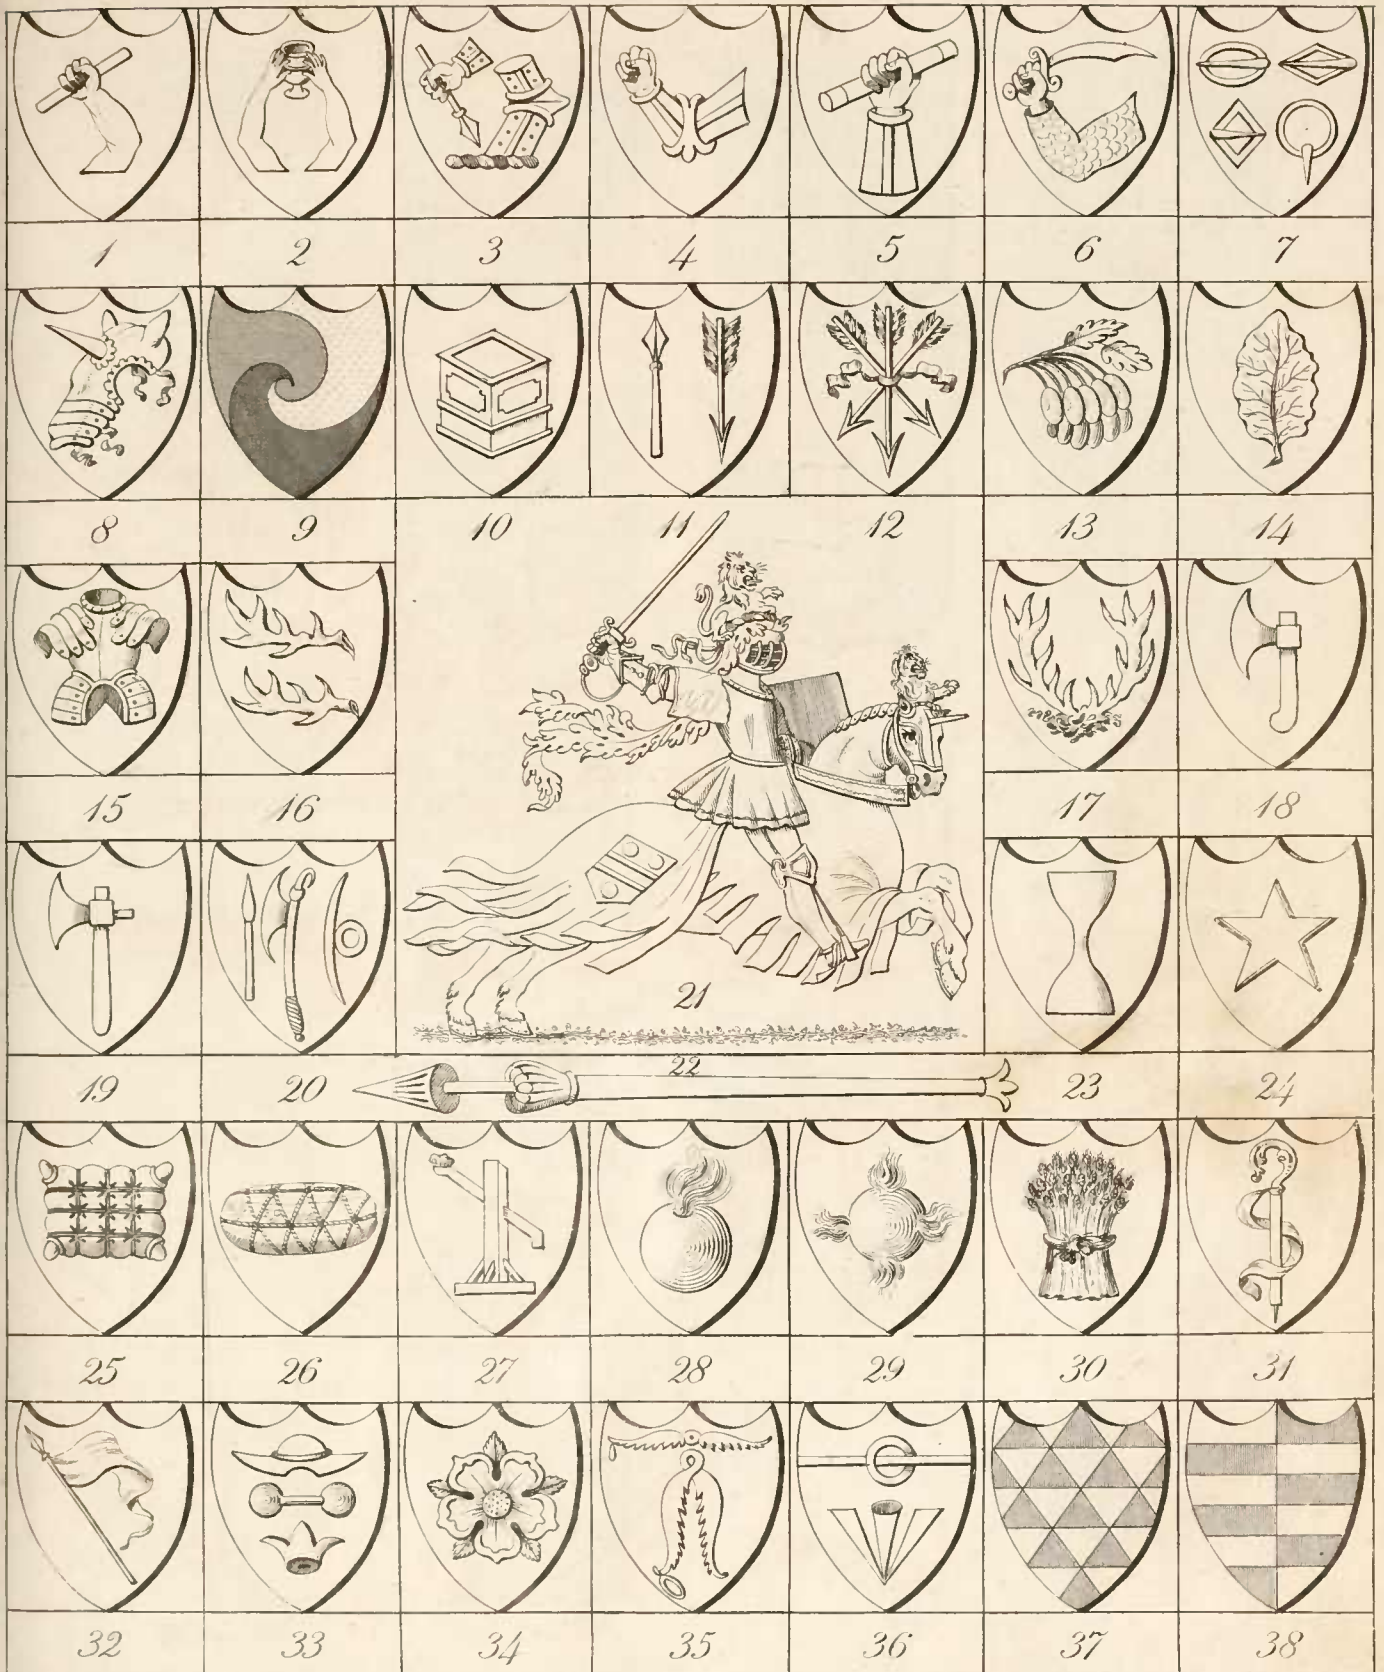 1 2 3 4 5 6 7
8 9 10 11 12 13 14
15 16 17 18
21
22
19 20 23 24
25 26 27 28 29 30 31
32 33 34 35 36 37 38